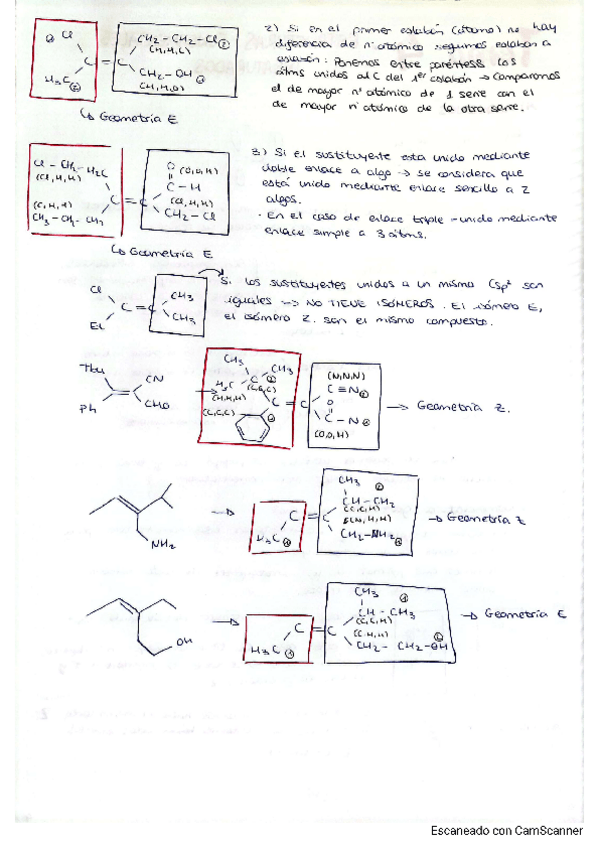 2) Si en el primer eslabón (átomo) no hay
diferencia de nº atómico seguimos eslabón a
eslabón: Ponemos entre paréntesis los
átms unidos al C del 1er eslabón → Comparamos
el de mayor nº atómico de 1 serie con el
de mayor nº atómico de la otra serie.
Cl
C = C
H3C
CH2-CH2-Cl
(H,H,C)
CH2-OH
(H,H,O)
↳ Geometría E
3) Si el sustituyente esta unido mediante
doble enlace a algo → se considera que
está unido mediante enlace sencillo a 2
algos.
· En el caso de enlace triple - unido mediante
enlace simple a 3 átms.
Cl - CH2 - H2C
(Cl, H, H)
(C, H, H)
CH3 - CH2 - CH2
C = C
O (O,O,H)
C - H
(Cl, H, H)
CH2 - Cl
↳ Geometría E
Si los sustituyentes unidos a un mismo Csp2 son
iguales → NO TIENE ISÓMEROS. El isómero E,
el isómero Z son el mismo compuesto.
Cl
C = C
Et
CH3
CH3
Tbu
Ph
CN
CHO
CH3
CH3
H3C
C
(C,C,C)
(H,H,H)
(C,C,C)
C = C
(N,N,N)
C ≡ N
O
C - N
(O,O,H)
→ Geometría Z.
NH2
H3C
C = C
CH3
CH - CH2
(C,C,H)
(N,H,H)
CH2 - NH2
→ Geometría Z
OH
H3C
C = C
CH3
CH - CH3
(C,C,H)
(C,H,H)
CH2 - CH2 - OH
→ Geometría E
Escaneado con CamScanner